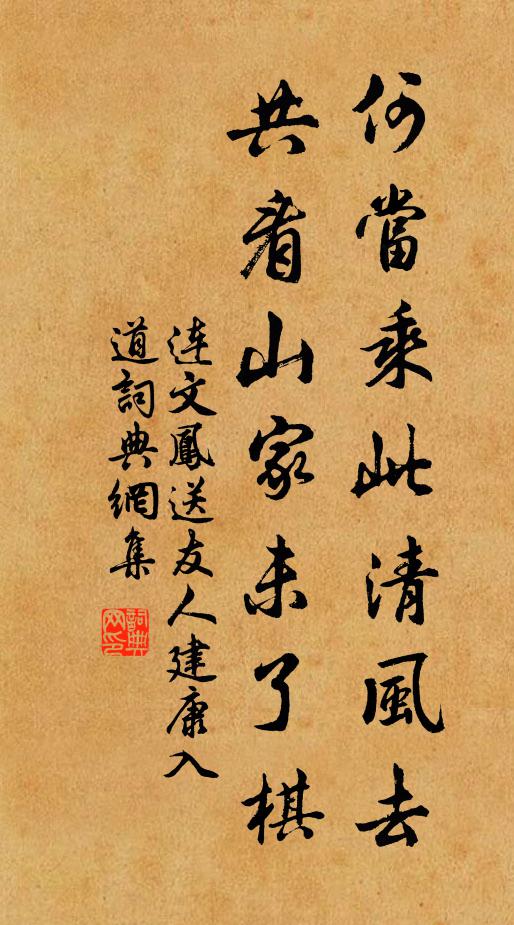 何當乘此清風去
共看山家未了棋
连文鳳送友人建康入
道詞典網集
詞典
网印